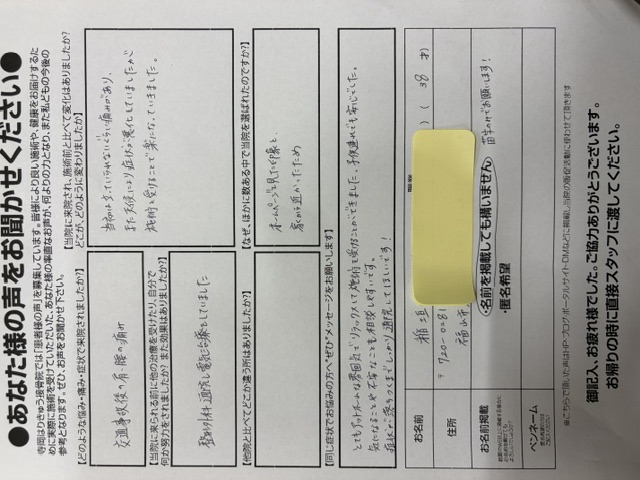 ●あなた様の声をお聞かせください●
寺岡はりきゅう接骨院では「患者様の声」を募集しています。皆様により良い施術や、健康をお届けするた
めに実際に施術を受けていただいた、あなた様の率直なお声が、何よりの力となり、また私どもの今後の
参考となります。ぜひ、お声をお聞かせ下さい。
【どのような悩み・痛み・症状で来院されましたか?】
交通事故後の肩・腰の痛み
【当院に来院され、施術前と比べて変化はありましたか?
どこが、どのように変わりましたか?】
当初は立っていられないぐらい痛みがあり、
また天候により症状が悪化していましたが
施術を受けることで楽になっていきました。
【当院に来られる前に他の治療を受けたり、自分で
何か努力をされましたか? また効果はありましたか?】
整形外科通院し電気治療をしていました
【なぜ、ほかに数ある中で当院を選ばれたのですか?】
ホームページを見た印象と、
家から近かったため
【他院と比べてどこか違う所はありましたか?】
【同じ症状でお悩みの方へ“ぜひ”メッセージをお願いします】
とてもアットホームな雰囲気でリラックスして施術を受けることができました。子供連れでも安心でした。
気になることや不安なことも相談しやすいです。
症状が落ちつくまでしっかり通院してほしいです!
お名前
稲垣
( 38 才)
住所
〒720-0281
福山市
お名前掲載
・名前を掲載しても構いません
苗字のみでお願います!
・匿名希望
ペンネーム
※こちらで頂いた声はHP・ブログ・ポータルサイト・DMなどに掲載し当院の販促活動に使わせて頂きます
御記入、お疲れ様でした。ご協力ありがとうございます。
お帰りの時に直接スタッフに渡してください。